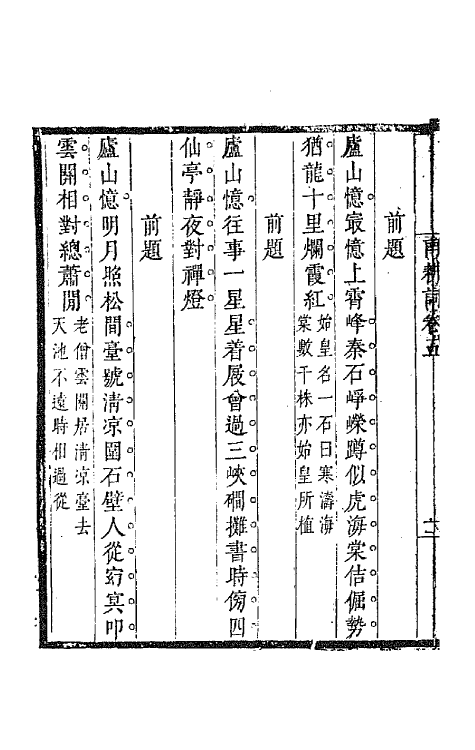 前題
廬山憶最憶上霄峰秦石崢嶸蹲似虎海棠佶倔勢
猶龍十里爛霞紅始皇名一石曰寒濤海
棠數千株亦始皇所植
前題
廬山憶往事一星星着屐曾過三峽磵攤書時傍四
仙亭靜夜對禪燈
前題
廬山憶明月照松間臺號淸凉圍石壁人從窈冥叩
雲關相對總蕭閒老僧雲關居清凉臺去
天池不遠時相過從